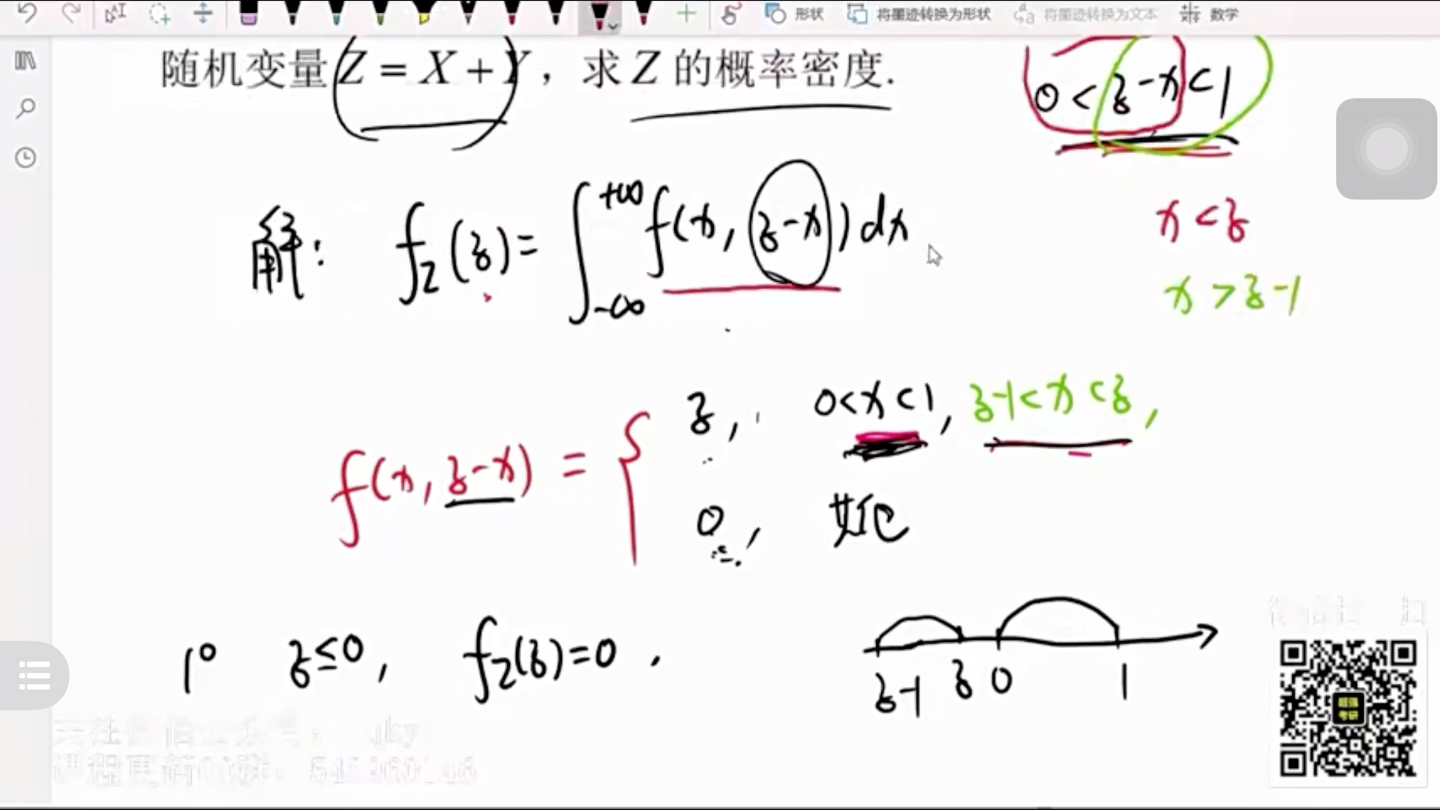 形状 将墨迹转换为形状 将墨迹转换为文本 数学
随机变量 Z = X + Y ，求 Z 的概率密度.
0 < z-x < 1
x < z
x > z-1
解： f_Z(z) = ∫_{-∞}^{+∞} f(x, z-x) dx
f(x, z-x) = { z, 0<x<1, z-1<x<z,
0, 其他
1° z≤0, f_Z(z)=0 .
z-1 z 0 1
超强
考研